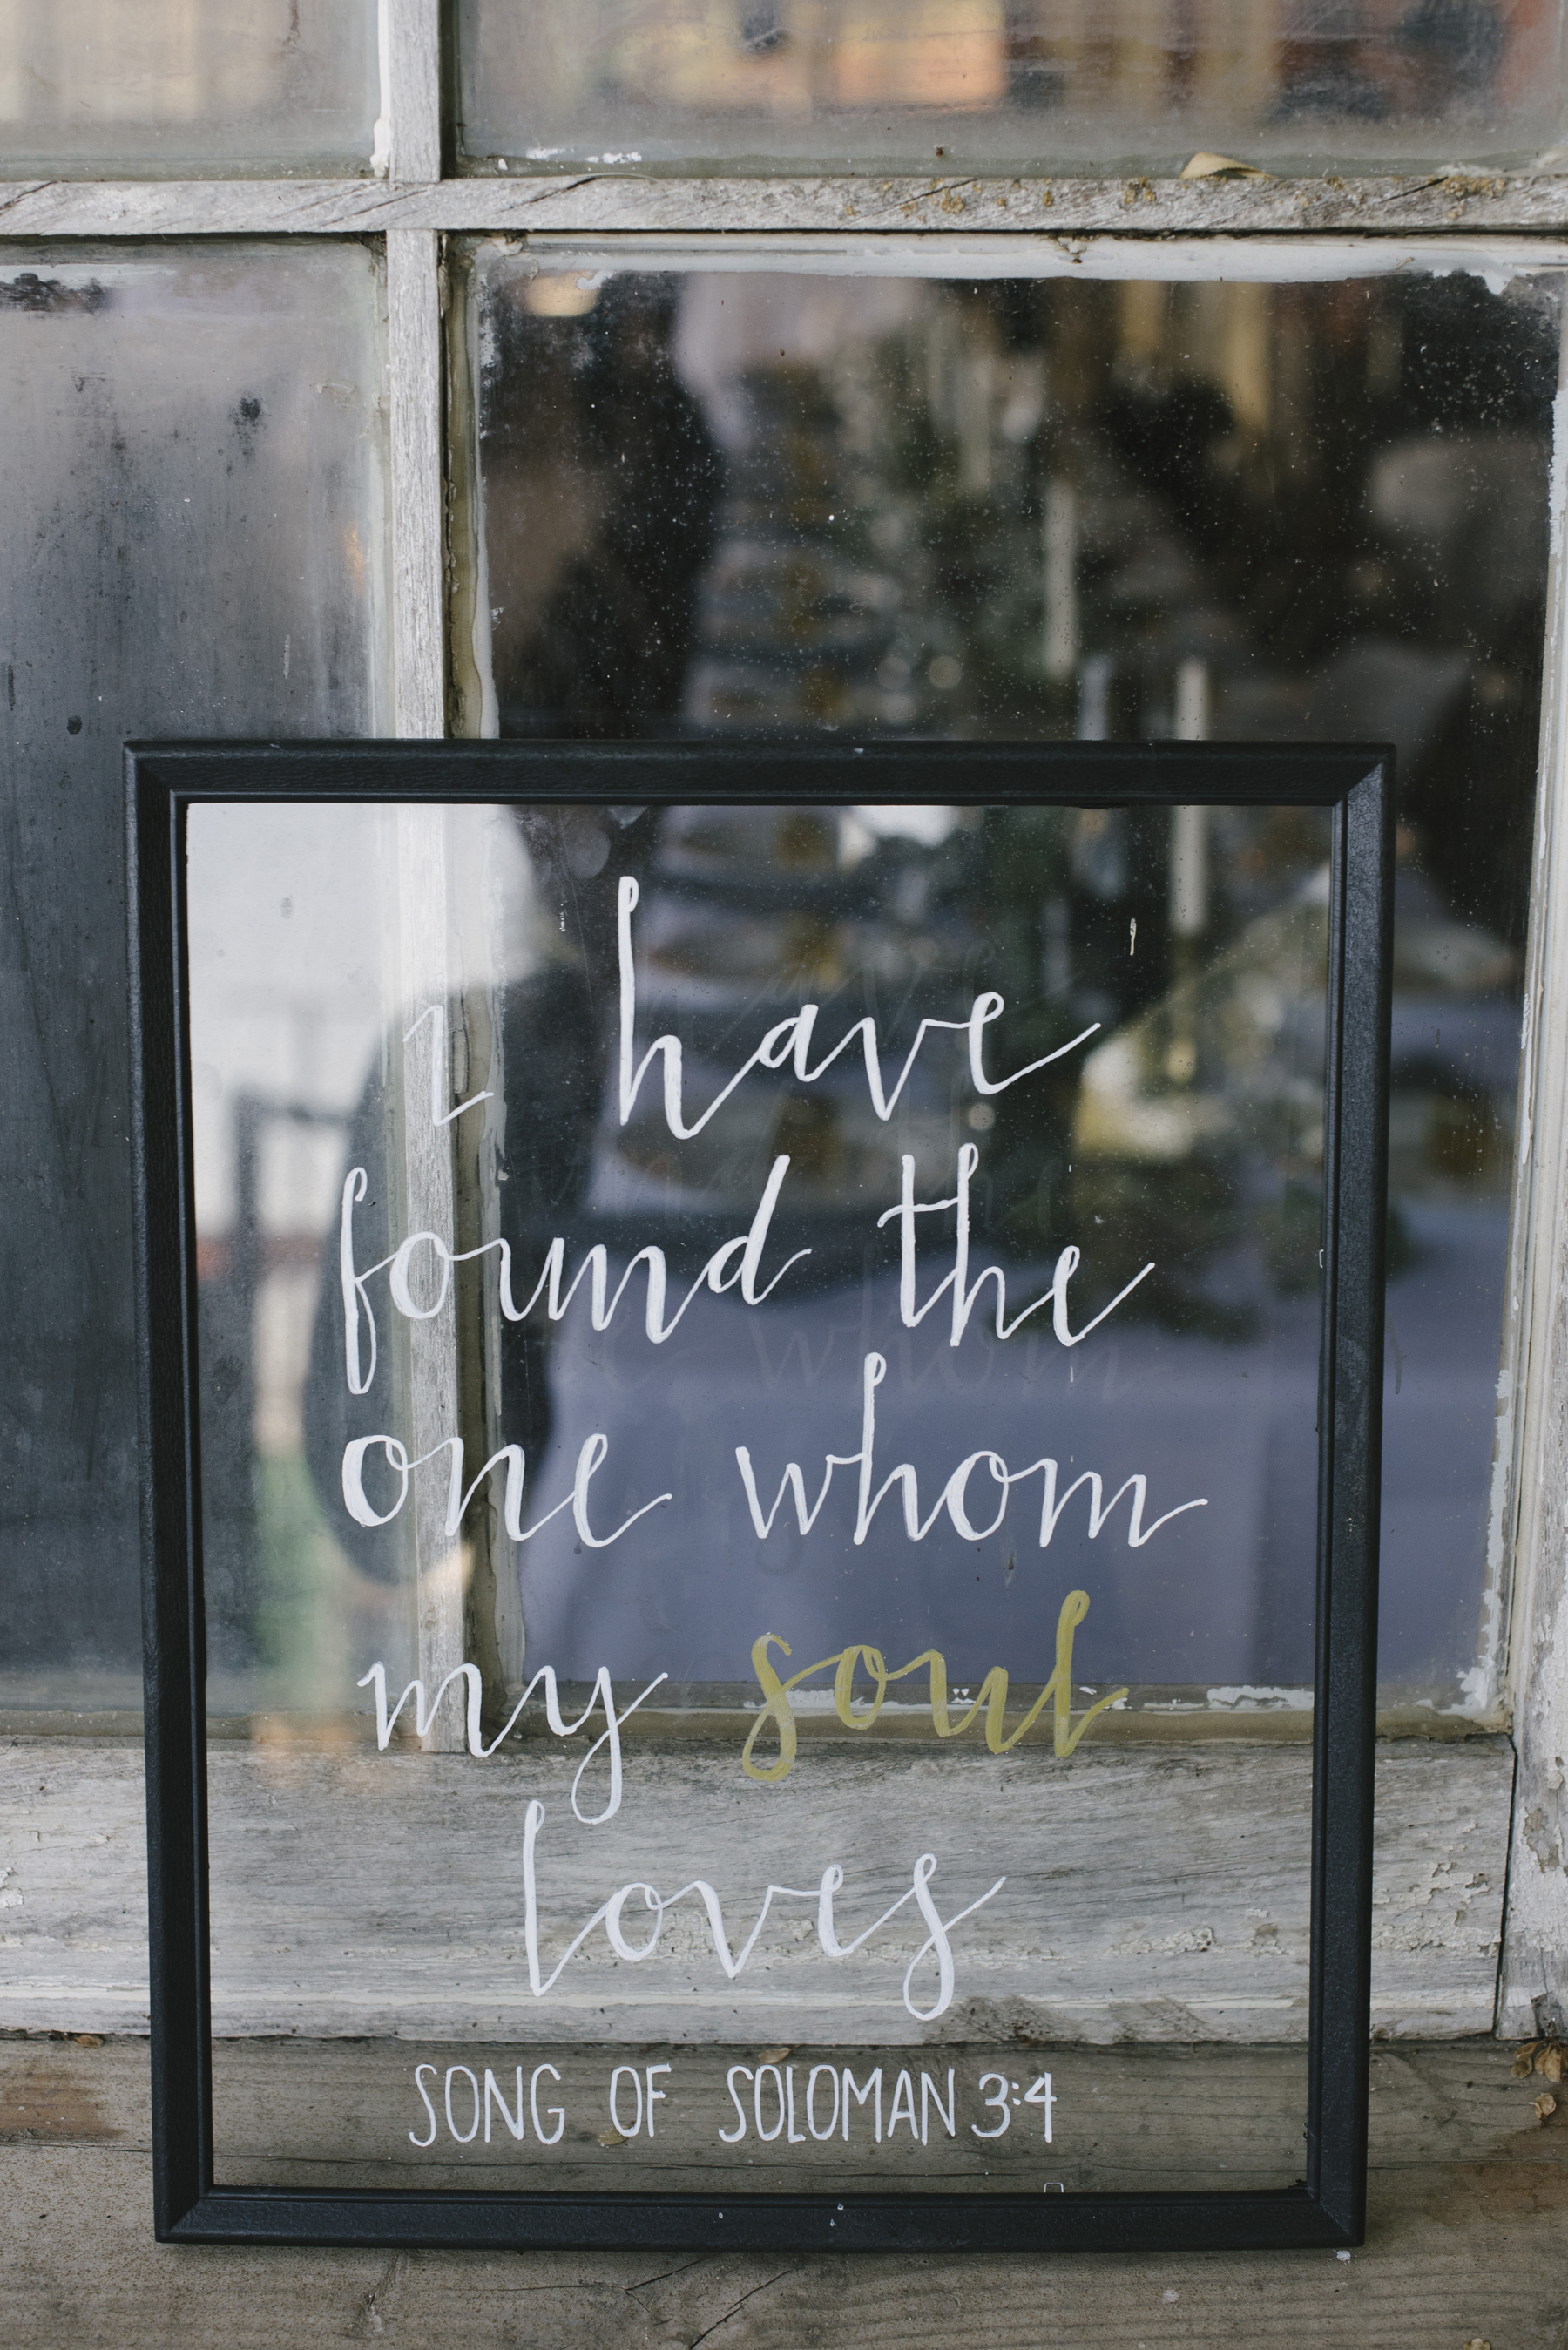 i have
found the
one whom
my soul
loves
SONG OF SOLOMAN 3:4